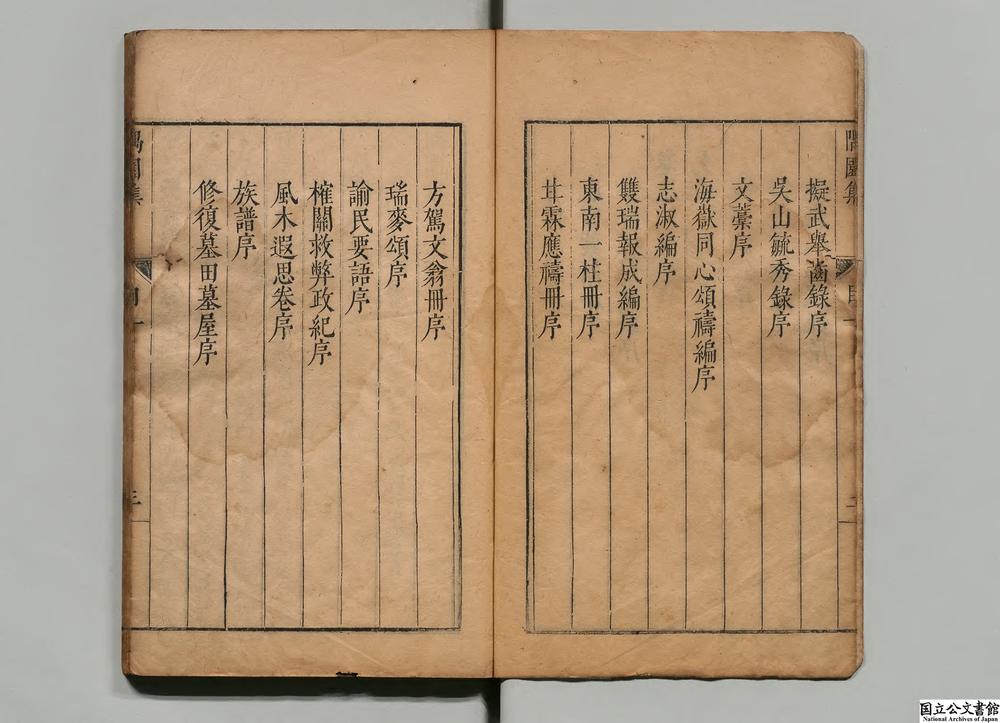 隅園集 目一 二
擬武舉齒錄序
吳山毓秀錄序
文藁序
海嶽同心頌禱編序
志淑編序
雙瑞報成編序
東南一柱冊序
甘霖應禱冊序
方駕文翁冊序
瑞麥頌序
諭民要語序
榷關救弊政紀序
風木遐思卷序
族譜序
修復墓田墓屋序
隅園集 目一 三
国立公文書館
National Archives of Japan